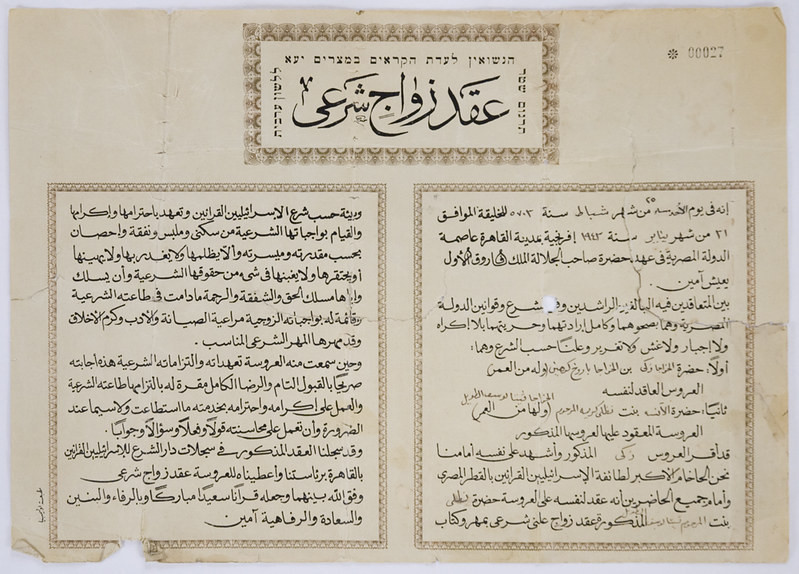 הנשואין לעדת הקראים במצרים יעא
תרגום שטר
ללשון ערבית
عقد زواج شرعى
* 00027
إنه فى يوم الأحد ٢٥ من شهر شباط سنة ٥٧٠٣ للخليقة الموافق
٣١ من شهر يناير سنة ١٩٤٣ إفرنجية بمدينة القاهرة عاصمة
الدولة المصرية فى عهد حضرة صاحب الجلالة الملك فاروق الأول
يعيش آمين .
بين المتعاقدين فيه البالغين الراشدين وفق الشرع وقوانين الدولة
المصرية وهما بصحوهما وكامل إرادتهما وحريتهما بلا إكراه
ولا إجبار ولا غش ولا تغرير وعلنًا حسب الشرع وهما :
أولًا : حضرة زكى بن وله من العمر
العروس العاقد لنفسه
ثانيًا : حضرة الآنسة بنت المرحوم ولها من العمر
العروسة المعقود عليها لعروسها المذكور
قد أقر العروس زكى المذكور وأشهد على نفسه أمامنا
نحن الحاخام الأكبر لطائفة الإسرائيليين القرائين بالقطر المصرى
وأمام جميع الحاضرين أنه عقد لنفسه على العروسة حضرة
بنت المرحوم المذكورة عقد زواج علنى شرعى بمهر وكتاب
وديثة حسب شرع الإسرائيليين القرائين وتعهد باحترامها وإكرامها
والقيام بواجباتها الشرعية من سكنى وملبس ونفقة وإحصان
بحسب مقدرته وميسرته وألا يظلمها ولا يغدر بها ولا يهينها
أو يحتقرها ولا يغبنها فى شىء من حقوقها الشرعية وأن يسلك
وإياها مسلك الحق والشفقة والرحمة ما دامت فى طاعته الشرعية
وقائمة له بواجباته الزوجية مراعية الصيانة والأدب وكرم الأخلاق
وقد مهرها المهر الشرعى المناسب .
وحين سمعت منه العروسة تعهداته والتزاماته الشرعية هذه أجابته
صريحًا بالقبول التام والرضا الكامل مقرة له بالتزامها طاعته الشرعية
والعمل على إكرامه واحترامه بخدمته ما استطاعت ولا سيما عند
الضرورة وأن تعمل على محاسنته قولًا وفعلًا وسؤالًا وجوابًا .
وقد سجلنا العقد المذكور فى سجلات دار الشرع للإسرائيليين القرائين
بالقاهرة برئاستنا وأعطيناه للعروسة عقد زواج شرعى
وفق الله بينهما وجعله قرانًا سعيدًا مباركًا وبالرفاء والبنين
والسعادة والرفاهية آمين .